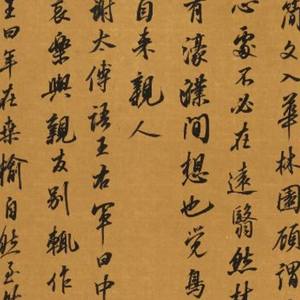 簡文入華林園顧謂
心處不必在遠翳然林
有濠濮間想也覺鳥
自來親人
謝太傅語王右軍曰中
哀樂與親友別輒作
王曰年在桑榆自然至